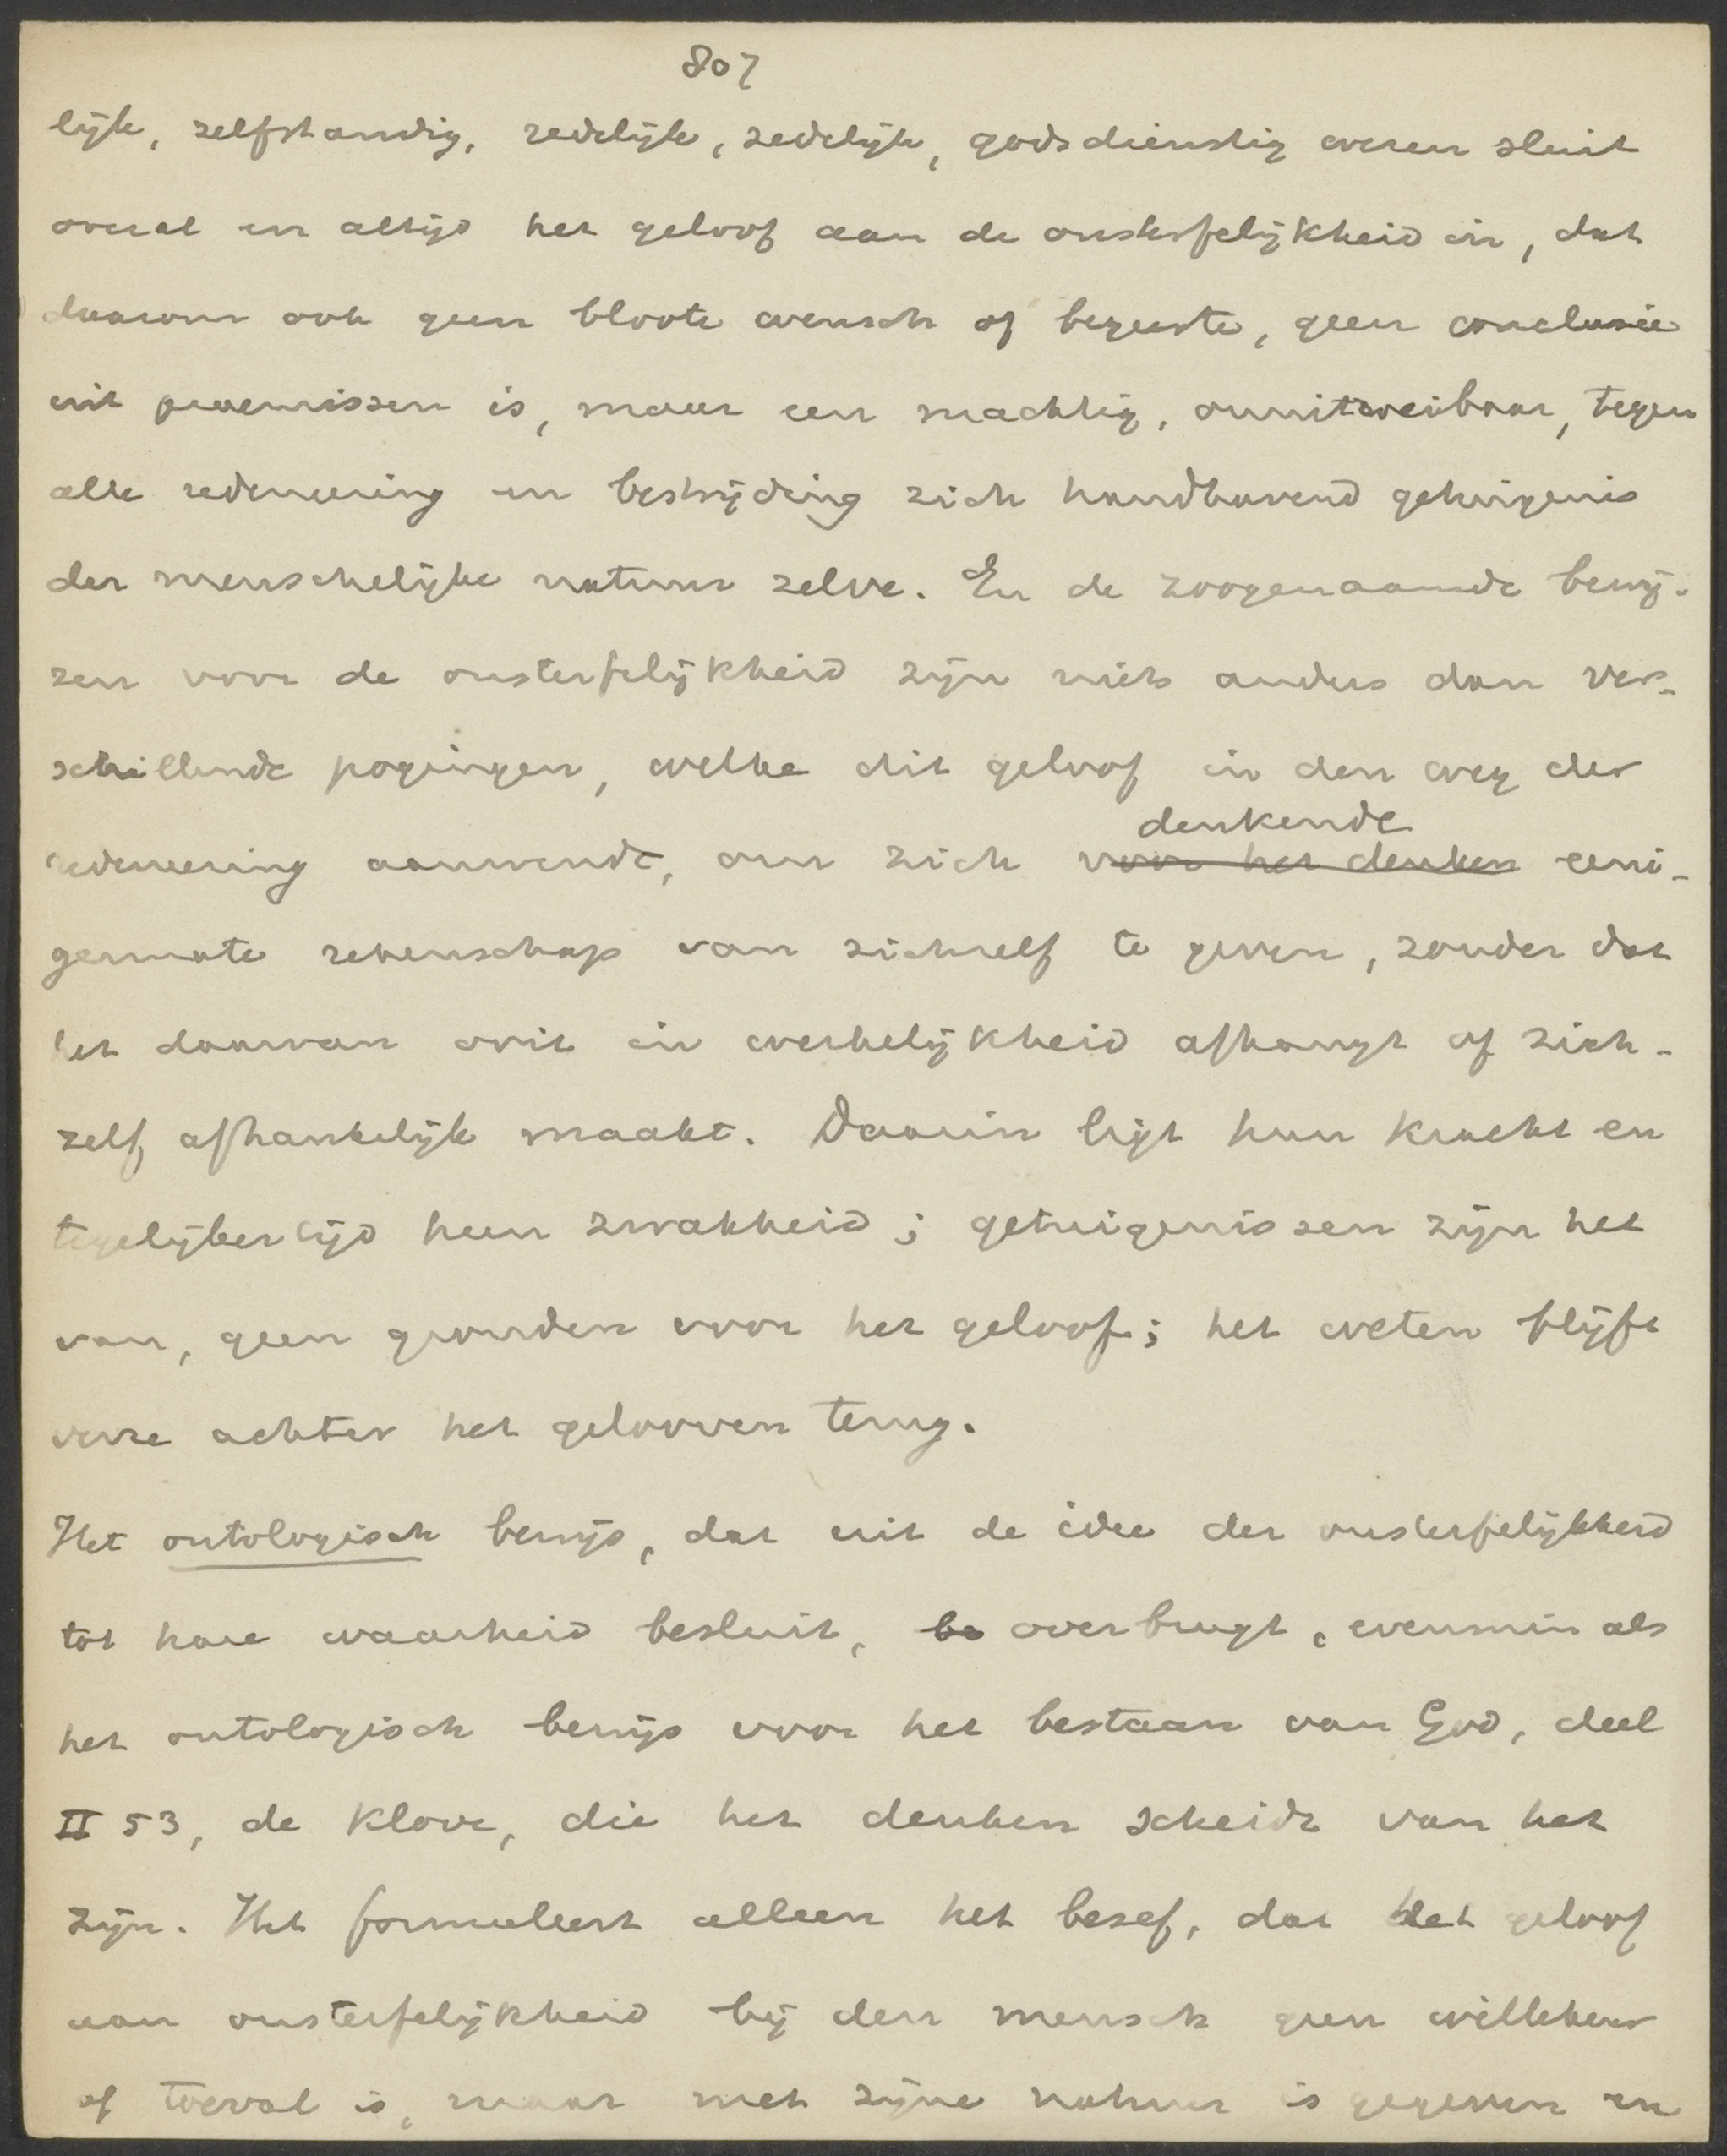 807
lijk, zelfstandig, redelijk, zedelijk, godsdienstig wezen sluit
overal en altijd het geloof aan de onsterfelijkheid in, dat
daarom ook geen bloote wensch of begeerte, geen conclusie
uit praemissen is, maar een machtig, onuitroeibaar, tegen
alle redeneering en bestrijding zich handhavend getuigenis
der menschelijke natuur zelve. En de zoogenaamde bewij-
zen voor de onsterfelijkheid zijn niets anders dan ver-
schillende pogingen, welke dit geloof in den weg der
denkende
redeneering aanwendt, om zich voor het denken eeni-
germate rekenschap van zichzelf te geven, zonder dat
het daarvan ooit in werkelijkheid afhangt of zich-
zelf afhankelijk maakt. Daarin ligt hun kracht en
tegelijkertijd hun zwakheid; getuigenissen zijn het
van, geen gronden voor het geloof; het weten blijft
verre achter het gelooven terug.
Het ontologisch bewijs, dat uit de idee der onsterfelijkheid
tot hare waarheid besluit, be overbrugt, evenmin als
het ontologisch bewijs voor het bestaan van God, deel
II 53, de klove, die het denken scheidt van het
zijn. Het formuleert alleen het besef, dat het geloof
aan onsterfelijkheid bij den mensch geen willekeur
of toeval is, maar met zijne natuur is gegeven en